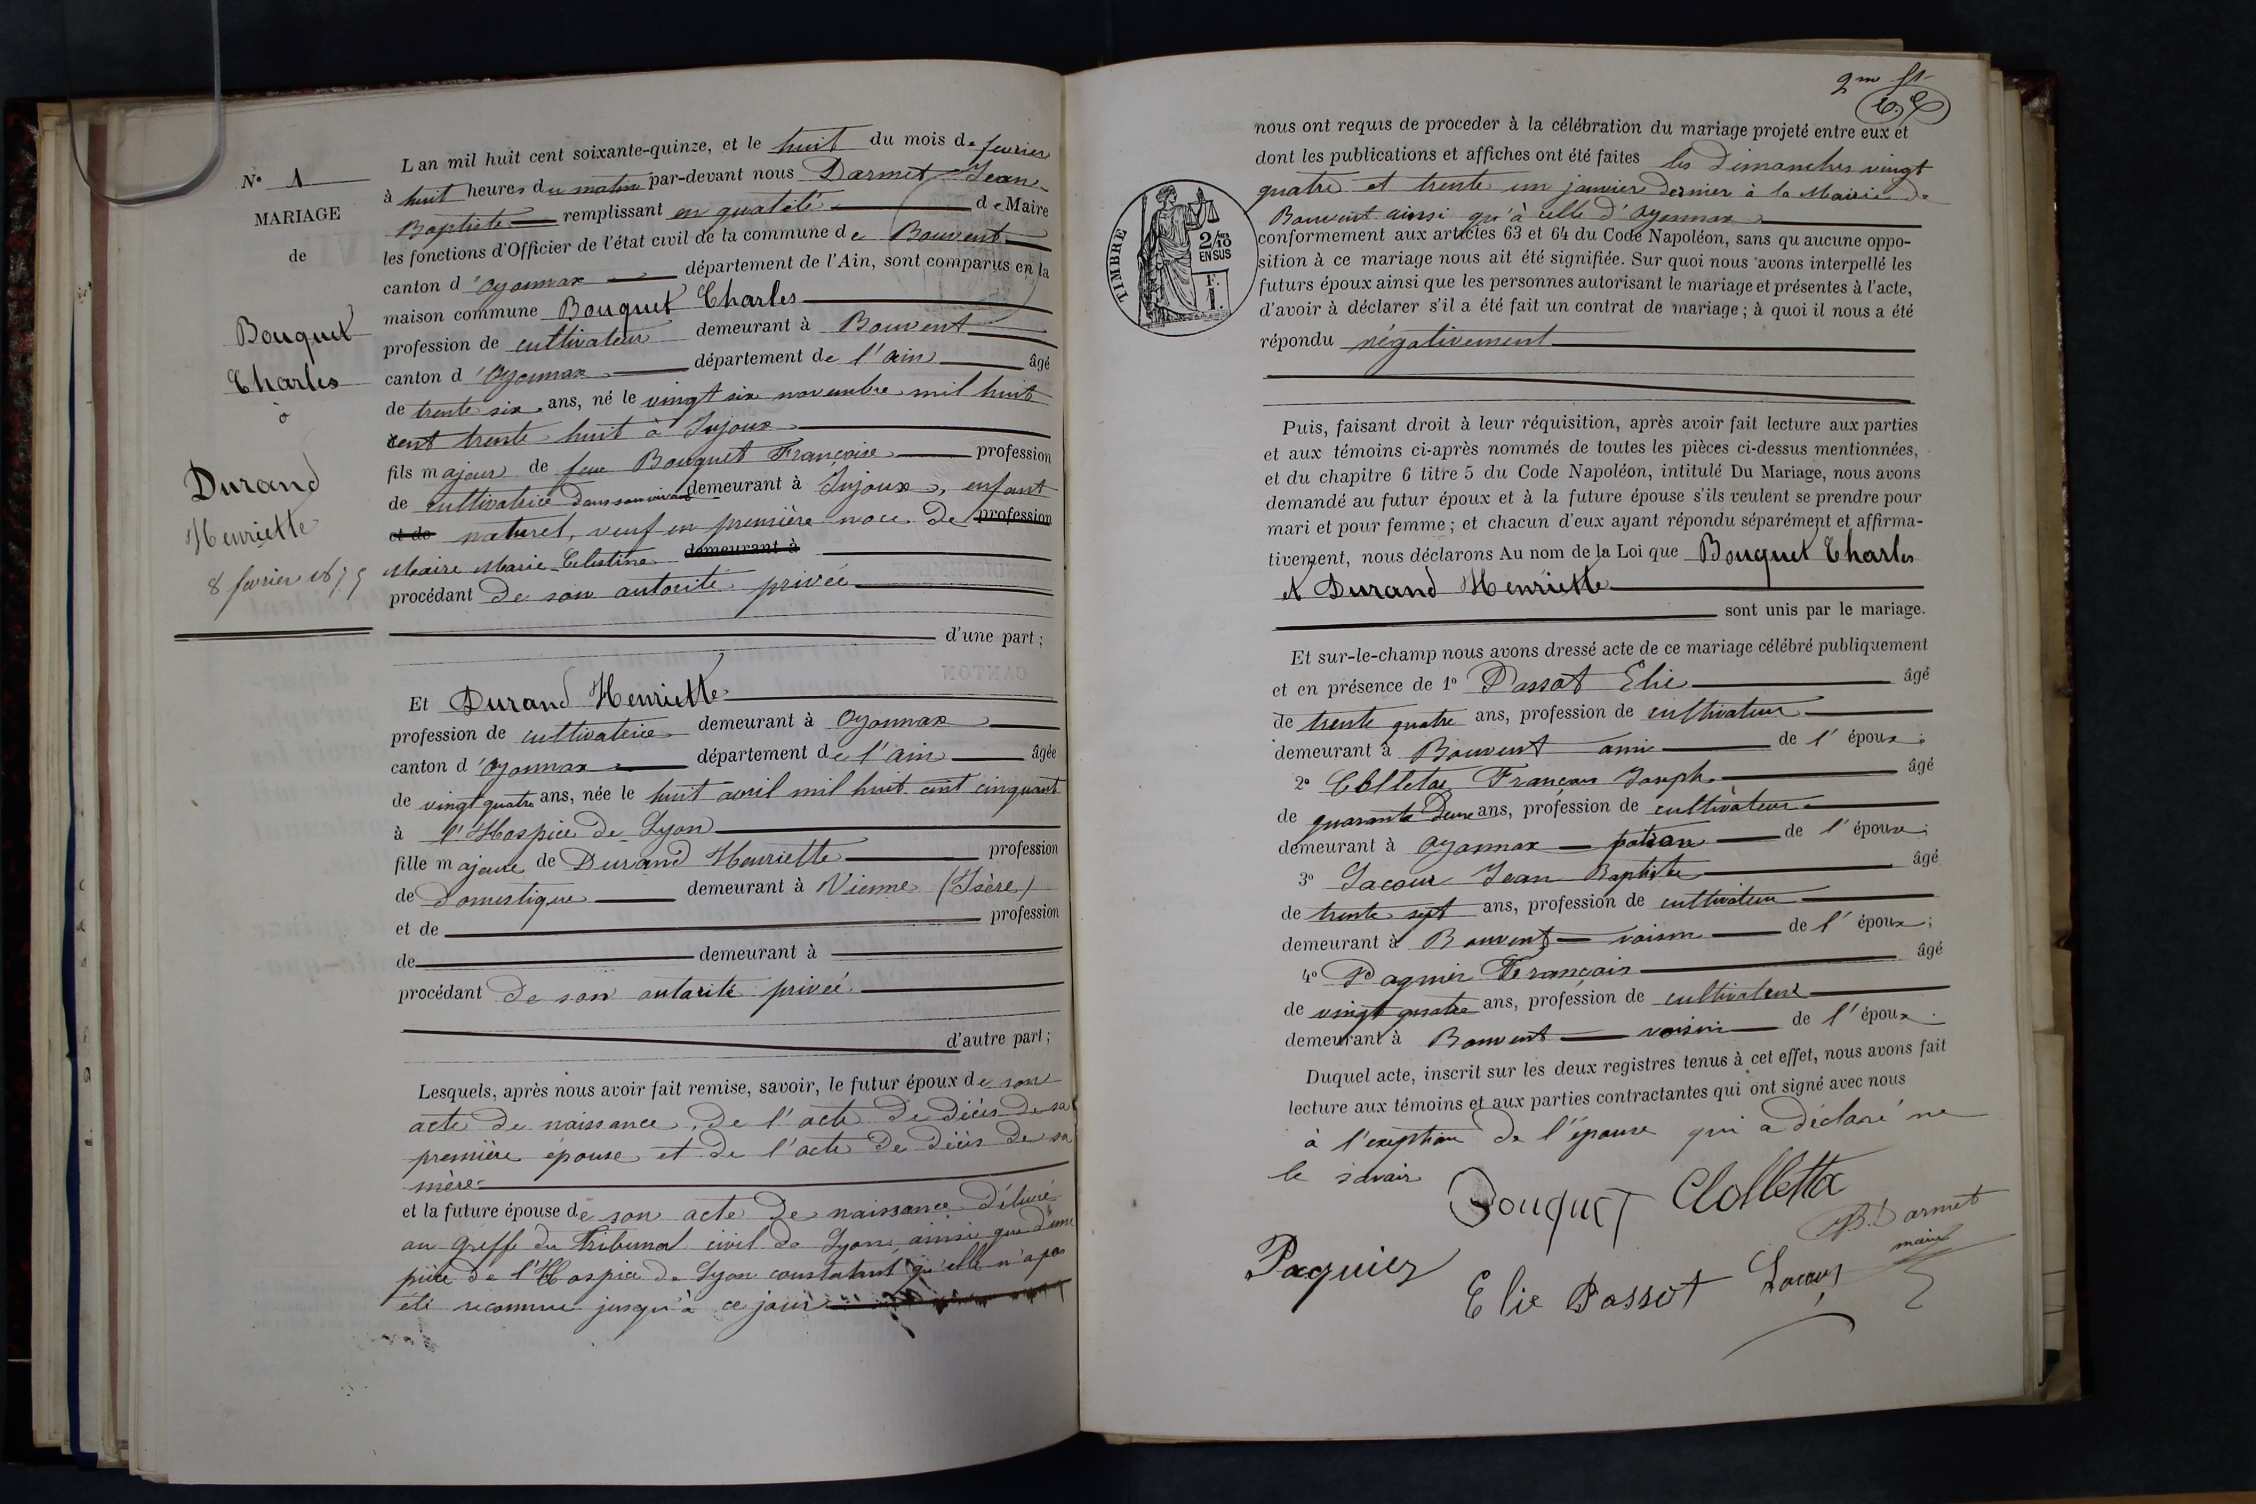 N° 1
MARIAGE
de
Bouquet
Charles
à
Durand
Henriette
8 fevrier 1875
L an mil huit cent soixante-quinze, et le huit du mois de fevrier
à huit heures du matin par-devant nous Darmet Jean-
Baptiste remplissant en qualité de Maire
les fonctions d'Officier de l'état civil de la commune de Bouvent
canton d'Oyonnax département de l'Ain, sont comparus en la
maison commune Bouquet Charles
profession de cultivateur demeurant à Bouvent
canton d'Oyonnax département de l'ain âgé
de trente six ans, né le vingt six novembre mil huit
cent trente huit à Injoux
fils majeur de feue Bouquet Françoise profession
de cultivatrice dans son vivant demeurant à Injoux, enfant
et de naturel, veuf en première noce de profession
Maire Marie Celestine demeurant à
procédant de son autorité privée
d'une part ;
Et Durand Henriette
profession de cultivatrice demeurant à Oyonnax
canton d'Oyonnax département de l'ain âgée
de vingt quatre ans, née le huit avril mil huit cent cinquant
à l'Hospice de Lyon
fille majeure de Durand Henriette profession
de domestique demeurant à Vienne (Isère)
et de profession
de demeurant à
procédant de son autorité privée
d'autre part ;
Lesquels, après nous avoir fait remise, savoir, le futur époux de son
acte de naissance, de l'acte de décès de sa
première épouse et de l'acte de décès de sa
mère
et la future épouse de son acte de naissance délivré
au Greffe du Tribunal civil de Lyon ainsi que d'une
pièce de l'Hospice de Lyon constatant qu'elle n'a pas
été reconnue jusqu'à ce jour
2me ft
TIMBRE
2/10
EN SUS
F.
1.
nous ont requis de proceder à la célébration du mariage projeté entre eux et
dont les publications et affiches ont été faites les dimanches vingt
quatre et trente un janvier dernier à la Mairie de
Bouvent ainsi qu'à celle d'Oyonnax
conformement aux articles 63 et 64 du Code Napoléon, sans qu aucune oppo-
sition à ce mariage nous ait été signifiée. Sur quoi nous avons interpellé les
futurs époux ainsi que les personnes autorisant le mariage et présentes à l'acte,
d'avoir à déclarer s'il a été fait un contrat de mariage ; à quoi il nous a été
répondu négativement
Puis, faisant droit à leur réquisition, après avoir fait lecture aux parties
et aux témoins ci-après nommés de toutes les pièces ci-dessus mentionnées,
et du chapitre 6 titre 5 du Code Napoléon, intitulé Du Mariage, nous avons
demandé au futur époux et à la future épouse s'ils veulent se prendre pour
mari et pour femme ; et chacun d'eux ayant répondu séparément et affirma-
tivement, nous déclarons Au nom de la Loi que Bouquet Charles
et Durand Henriette
sont unis par le mariage.
Et sur-le-champ nous avons dressé acte de ce mariage célébré publiquement
et en présence de 1° Passot Elie âgé
de trente quatre ans, profession de cultivateur
demeurant à Bouvent ami de l'époux ;
2° Collletta François Joseph âgé
de quarante deux ans, profession de cultivateur
demeurant à Oyonnax patron de l'époux ;
3° Lacour Jean Baptiste âgé
de trente sept ans, profession de cultivateur
demeurant à Bouvent voisin de l'époux ;
4° Paquier François âgé
de vingt quatre ans, profession de cultivateur
demeurant à Bouvent voisin de l'époux.
Duquel acte, inscrit sur les deux registres tenus à cet effet, nous avons fait
lecture aux témoins et aux parties contractantes qui ont signé avec nous
à l'exeption de l'épouse qui a déclaré ne
le savoir
Bouquet Clolletta
JB. Darmet
maire
Paquier
Elie Passot Lacour